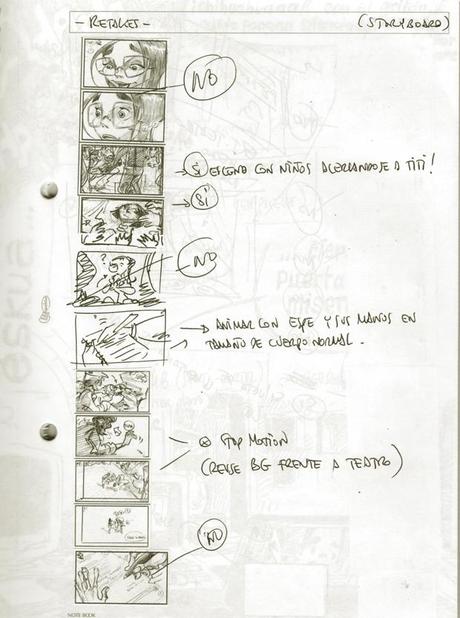 - RETALES -
(STORYBOARD)
NO
→ SI ESCENA CON NIÑOS ACERCANDOSE A TITI!
→ SÍ
?
NO
→ ANIMAR CON ESTE Y SUS MANOS EN
TAMAÑO DE CUERPO NORMAL.
STOP MOTION
(REUSE BG FRENTE A TEATRO)
NO
NOTE BOOK